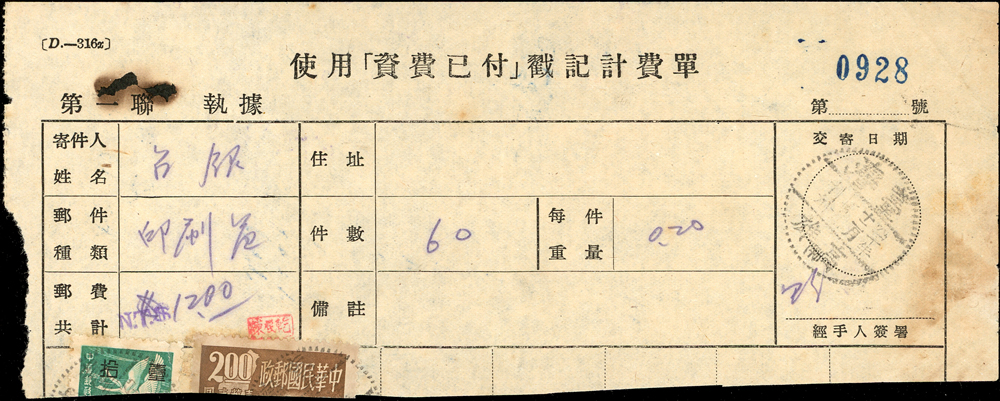 〔D.—316z〕
使用「資費已付」戳記計費單
0928
第一聯 執據
第 號
寄件人姓名 台銀
住址
交寄日期
郵件種類 印刷
件數 60
每件重量 0.20
郵費共計 N.T.$ 12.00
備註
經手人簽署
壹拾
200
中華民國郵政